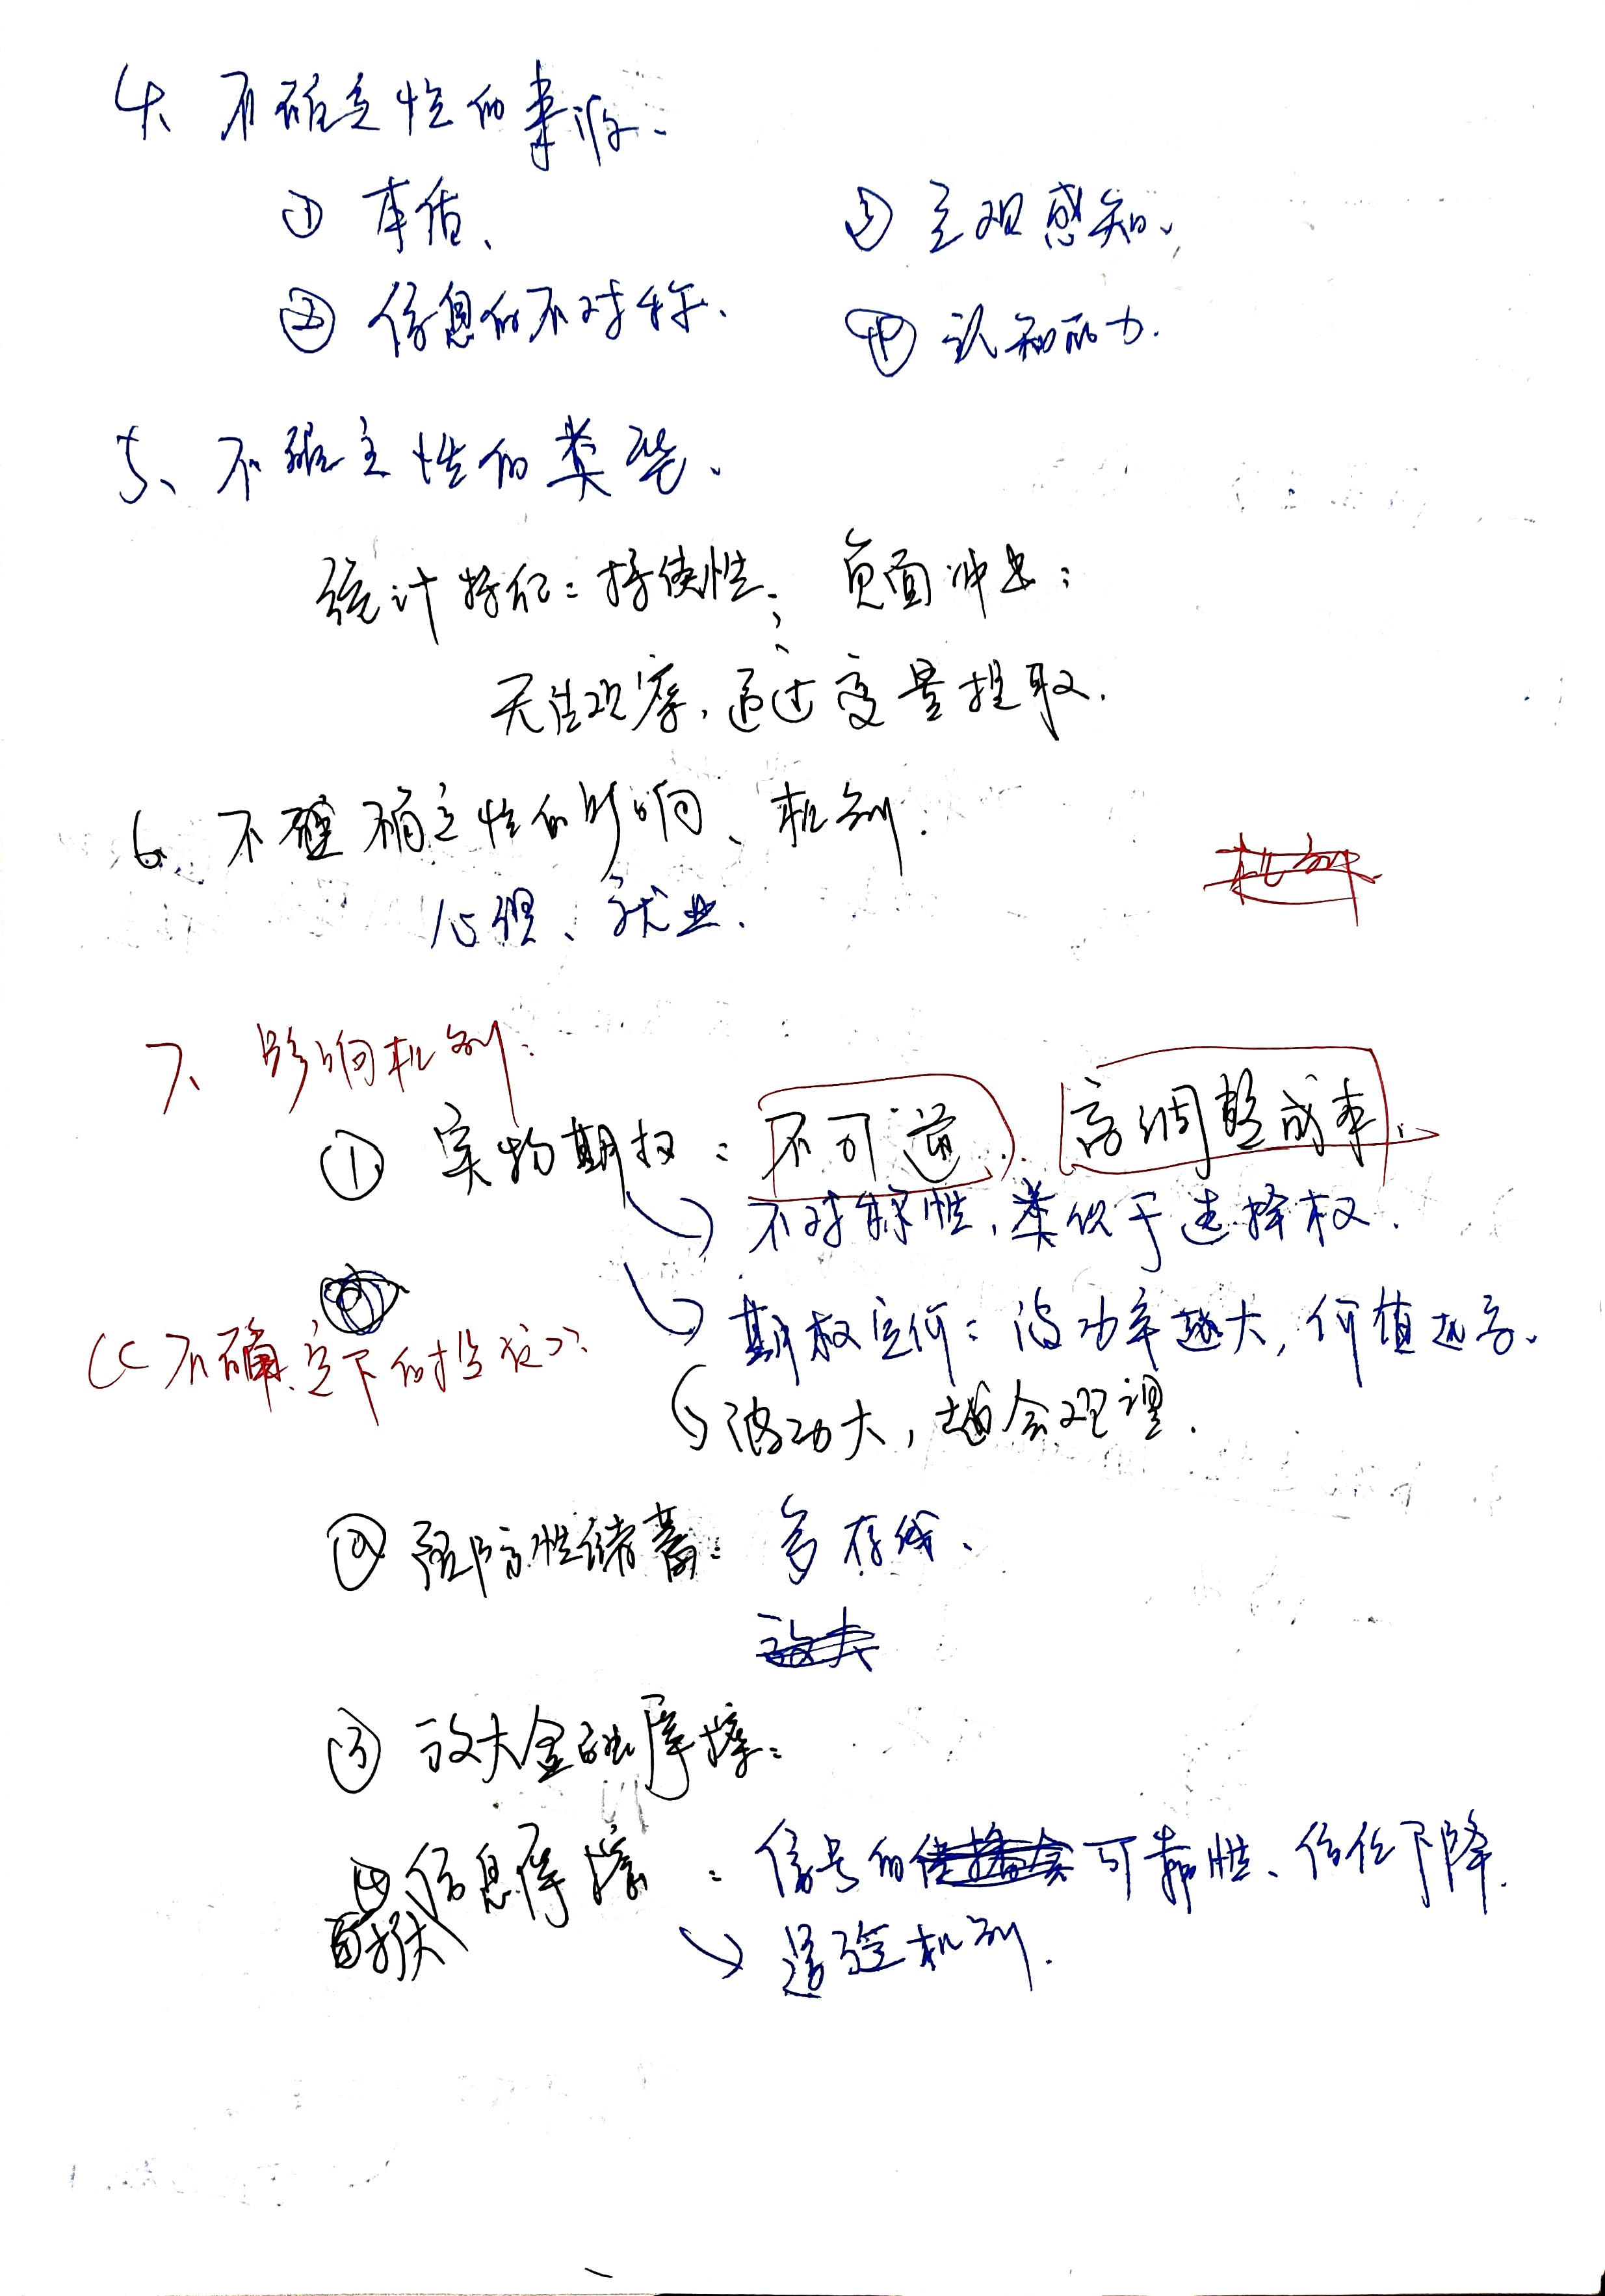 4、不确定性的来源、
① 本质、 ③ 主观感知、
② 信息的不对称、 ④ 认知能力.
5、不确定性的类型、
统计特征：持续性； 负面冲击；
无法观察，通过变量提取.
6、不确定性的影响、机制：
心理、就业.
7、影响机制：
① 实物期权：不可逆、高调整成本、
不对称性，类似于选择权.
期权定价：波动率越大，价值越高.
《不确定下的投资》
波动大，越会观望.
② 预防性储蓄：多存钱、
③ 放大金融摩擦：
④ 信息摩擦：信号的可靠性、信任下降.